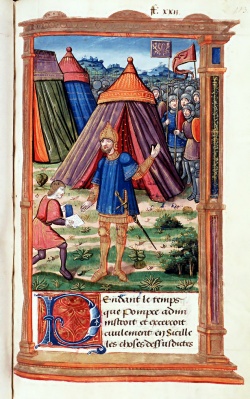 fe. xxii
Pendant le temps
que Pompee admi
nistroit et excercoit
ciuilement en Sicille
les choses dessusdictes